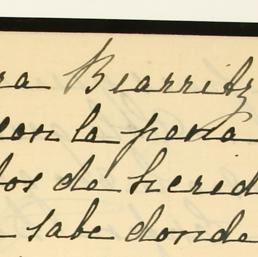 ra Biarritz
con la pena
los de hered
sabe donde